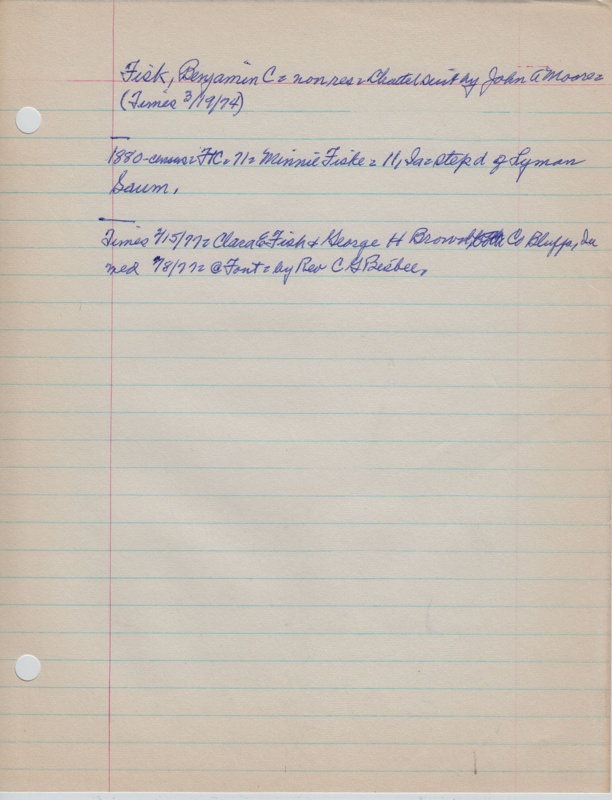 Fisk, Benjamin C = non res = Chattel suit by John A Moore =
(Times 3/19/74)
1880 - census = FtC = 71 = Minnie Fiske = 11, Ia = step d of Lyman
Saum.
Times 2/15/77 = Clara E Fish & George H Brown, both C Bluffs, Ia
med 2/8/77 = @ Font = by Rev C G Bisbee,